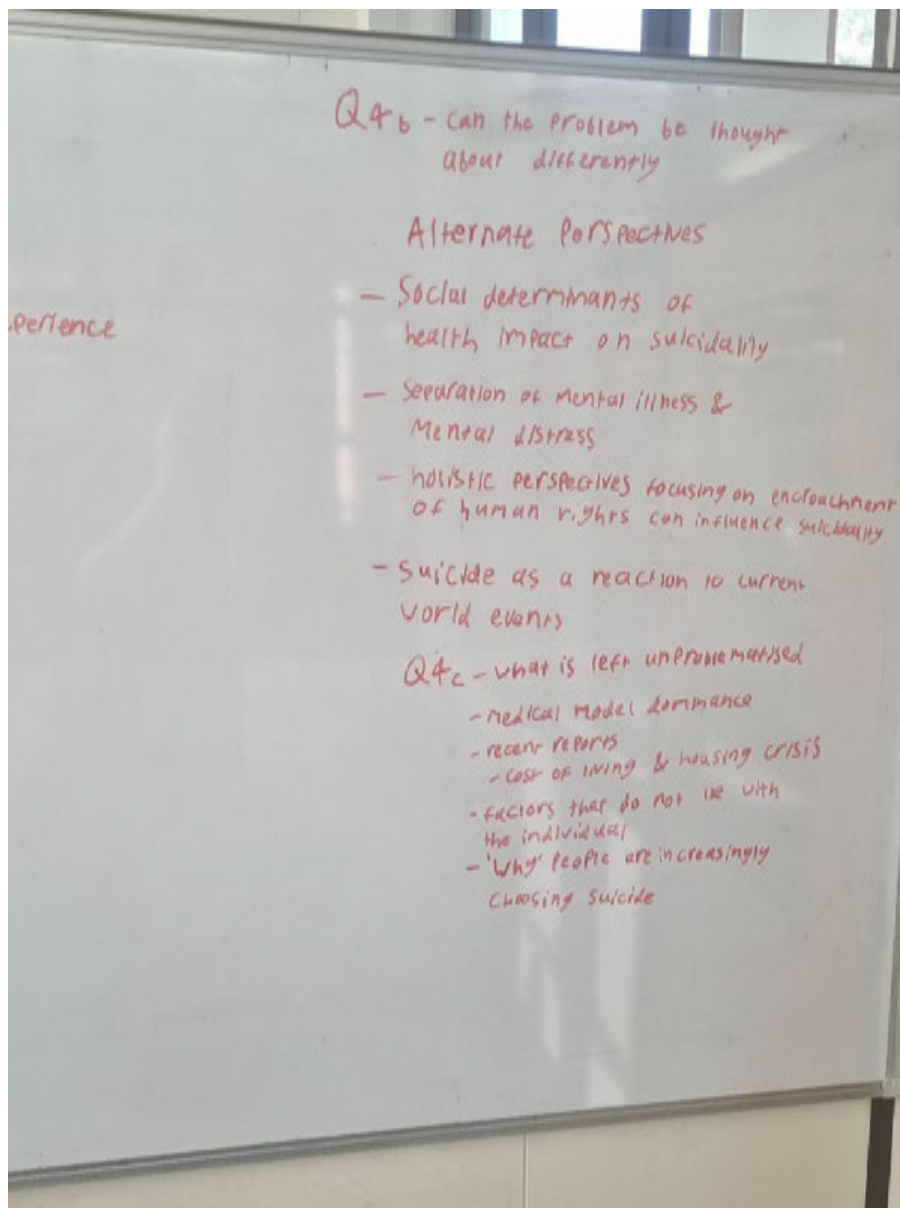 Q4b - can the problem be thought
about differently
Alternate Perspectives
- Social determinants of
health impact on suicidality
perience
- Separation of Mental illness &
Mental distress
- holistic perspectives focusing on encrouchment
of human rights can influence suicidality
- Suicide as a reaction to current
world events
Q4c - what is left unproblematised
- medical model dominance
- recent reports
- cost of living & housing crisis
- factors that do not lie with
the individual
- 'why' people are increasingly
choosing suicide